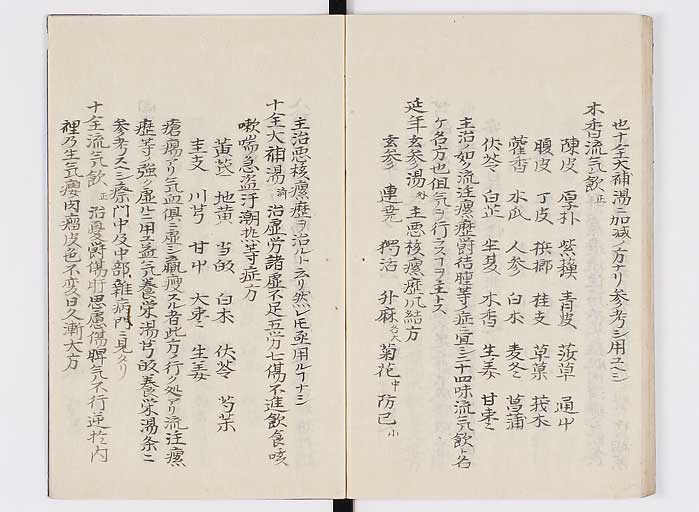 也十全大補湯ニ加減ノ方ナリ参考シ用ユベシ
木香流気飲 正
陳皮 厚朴 紫蘓 青皮 莎草 通中
腹皮 丁皮 檳榔 桂支 草菓 莪朮
藿香 木瓜 人参 白朮 麦冬 菖蒲
伏苓 白芷 半夏 木香 生姜 甘棗ニ
主治ノ如ク流注瘰癧欝結腫等ノ症ニ宜シ二十四味流気飲ト名
ケ名方也但気ヲ行ラスヿヲ主トス
延年玄参湯 外 主悪核瘰癧風結方
玄参 連尭 獨治 升麻 各大 菊花 中 防已 小
主治悪核瘰癧ヲ治ルト云リ然レ𪜈用ルヿナシ
十全大補湯 治虚労諸虚不足五労七傷不進飲食咳
嗽喘急盗汗潮熱等症方
黄芪 地黄 当的 白朮 伏苓 芍薬
圭支 川芎 甘中 大棗ニ 生姜
瘡瘍アリ気血倶ニ虚シ羸痩スル者此方ヲ行ク処アリ流注瘰
癧等ノ強ク虚ルニ用ユ益気養栄湯芎的養栄湯条ニ
参考スベシ療門中及中部雑病門ニ見ヘタリ
十全流気飲 正 治憂欝傷肝思慮傷脾気不行逆於肉
裡乃生気癭肉瘤皮色不変日久漸大方